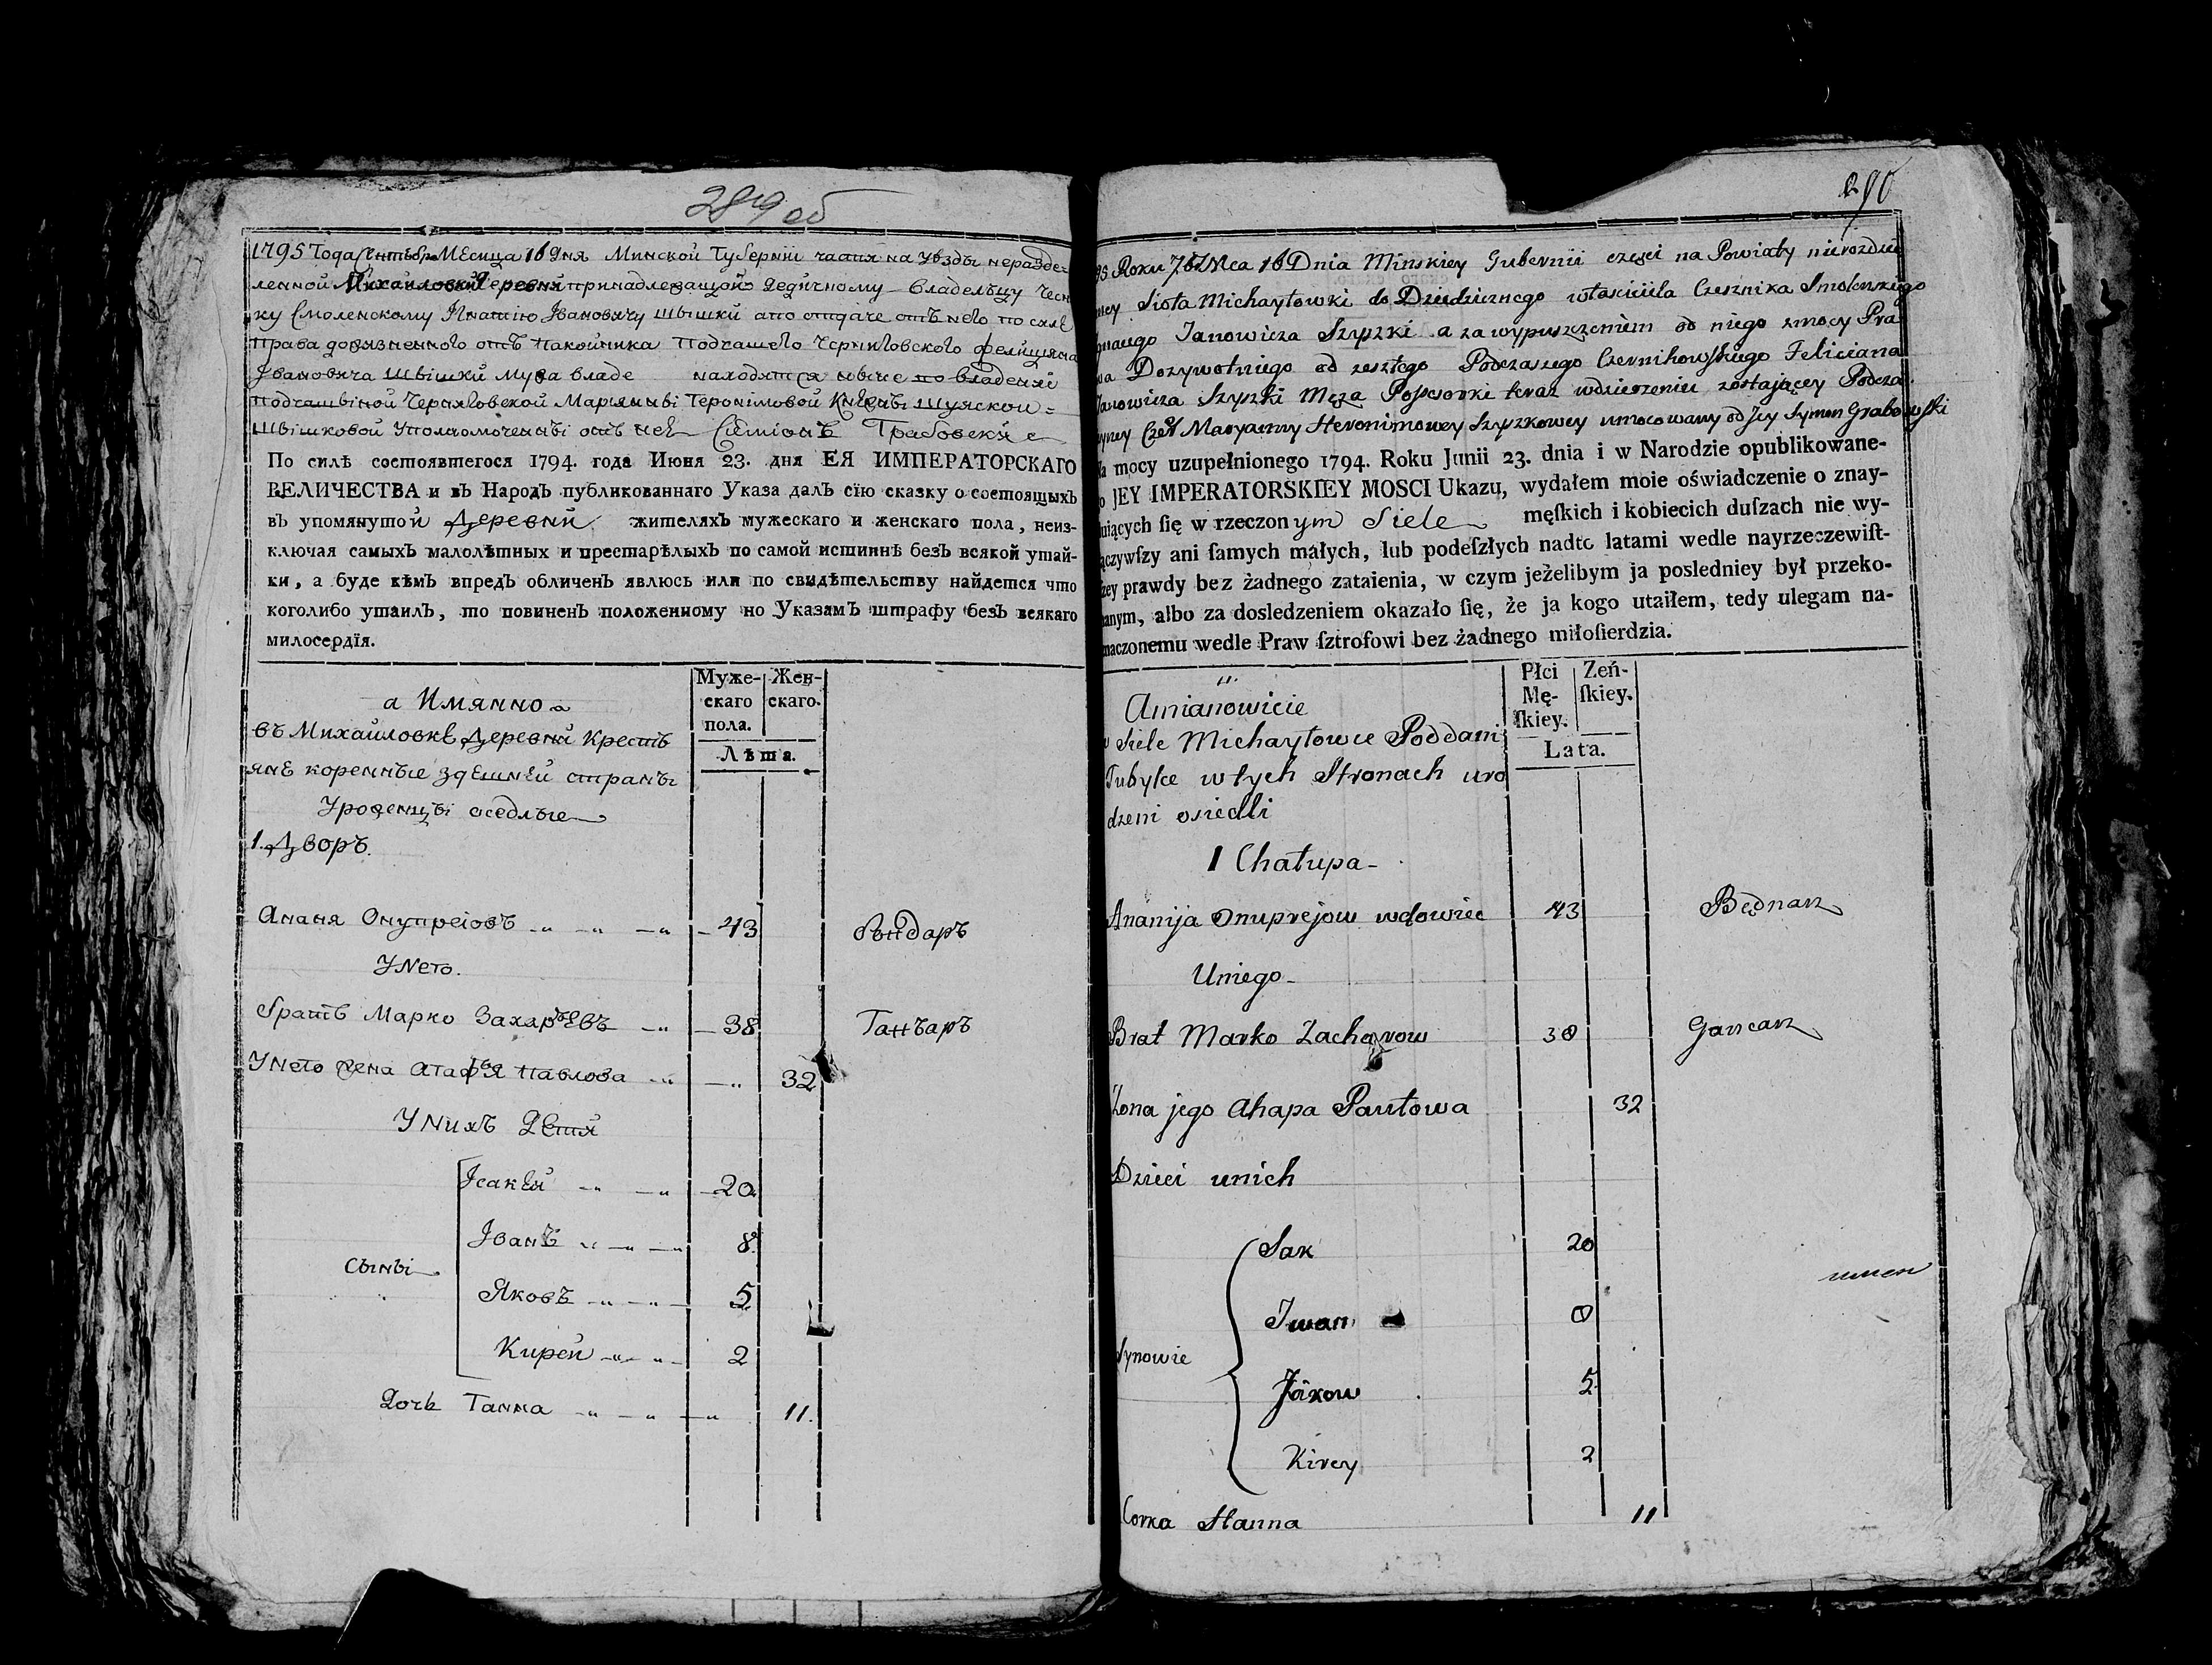 289 об
1795 Года Сентебр Месеца 16 дня Минской Губернїи части на Уезды неразде-
ленной Михайловки деревни принадлежащой дедичному владельцу Чесни
ку Смоленскому Игнатию Ивановичу Шышки а по отдаче отъ него по силе
права дожизненного отъ покойника Подчашего Черниговского Фелицияна
Ивановича Шышки мужа владе находятся ныне по владений
подчашыной Черниговской Марянны Геронимовой Шуяской =
Шышковой Уполномоченны отъ неё Семионъ Грабовски
По силѣ состоявшегося 1794. года Июня 23. дня ЕЯ ИМПЕРАТОРСКАГО
ВЕЛИЧЕСТВА и въ Народъ публикованнаго Указа далъ сїю сказку о состоящыхъ
въ упомянутой Деревни жителяхъ мужескаго и женскаго пола, неиз-
ключая самыхъ малолѣтныхъ и престарѣлыхъ по самой истиннѣ безъ всякой утай-
ки, а буде кѣмъ впредъ обличенъ явлюсь или по свидѣтельству найдется что
коголибо утаилъ, то повиненъ положенному но Указамъ штрафу безъ всякаго
милосердїя.
Муже-скаго пола. Жен-скаго.
Лѣта.
а Имянно
въ Михайловке Деревни Кресть
яне коренные здешней страны
Уроженцы оседлые
1. Дворъ.
Ананя Онупреіовъ 43 бондаръ
У Него.
братъ Марко Захарьевъ 38 Ганчаръ
У Него жена Агафья Павлова 32
У Нихъ Дети
Исакей 20
Іванъ 8
Сыны
Яковъ 5
Кирей 2
Дочь Ганна 11.
290
95 Roku 7br Mca 16 Dnia Minskiey Gubernii części na Powiaty nierozdzie
ney Sioła Michayłowki do Dziedzicznego własciciela Czesnika Smolenskiego
gnacego Janowicza Szyszki a za wypuszczeniem od niego zmocy Pra
wa Dozywotniego od zeszłego Podczaszego Czernihowskiego Feliciana
Janowicza Szyszki Męża Possesorki teraz wdzierzeniu zostającey Podcza
szyney Czer Maryanny Heronimowey Szyszkowey umocowany od Jey Symon Grabowski
a mocy uzupełnionego 1794. Roku Junii 23. dnia i w Narodzie opublikowane-
o JEY IMPERATORSKIEY MOSCI Ukazu, wydałem moie oświadczenie o znay-
uiących ſię w rzeczonym Siele męſkich i kobiecich duſzach nie wy-
ączywſzy ani ſamych małych, lub podeſzłych nadto latami wedle nayrzeczewiſt-
zey prawdy bez żadnego zataienia, w czym jeżelibym ja posledniey był przeko-
anym, albo za dosledzeniem okazało ſię, że ja kogo utaiłem, tedy ulegam na-
naczonemu wedle Praw ſztrofowi bez żadnego miłoſierdzia.
Płci Mę-ſkiey. Zeń-ſkiey.
Lata.
Amianowicie
w Siele Michayłowce Poddani
Tubylce w tych Stronach uro
dzeni osiedli
1 Chałupa
Ananija Onuprejow wdowiec 43 Bednarz
Uniego
Brat Marko Zacharow 38 Garncarz
Żona jego Ahapa Pawłowa 32
Dzieci unich
Sak 20
Iwan 8
Synowie
Jakow 5
Kirey 2
Corka Hanna 11